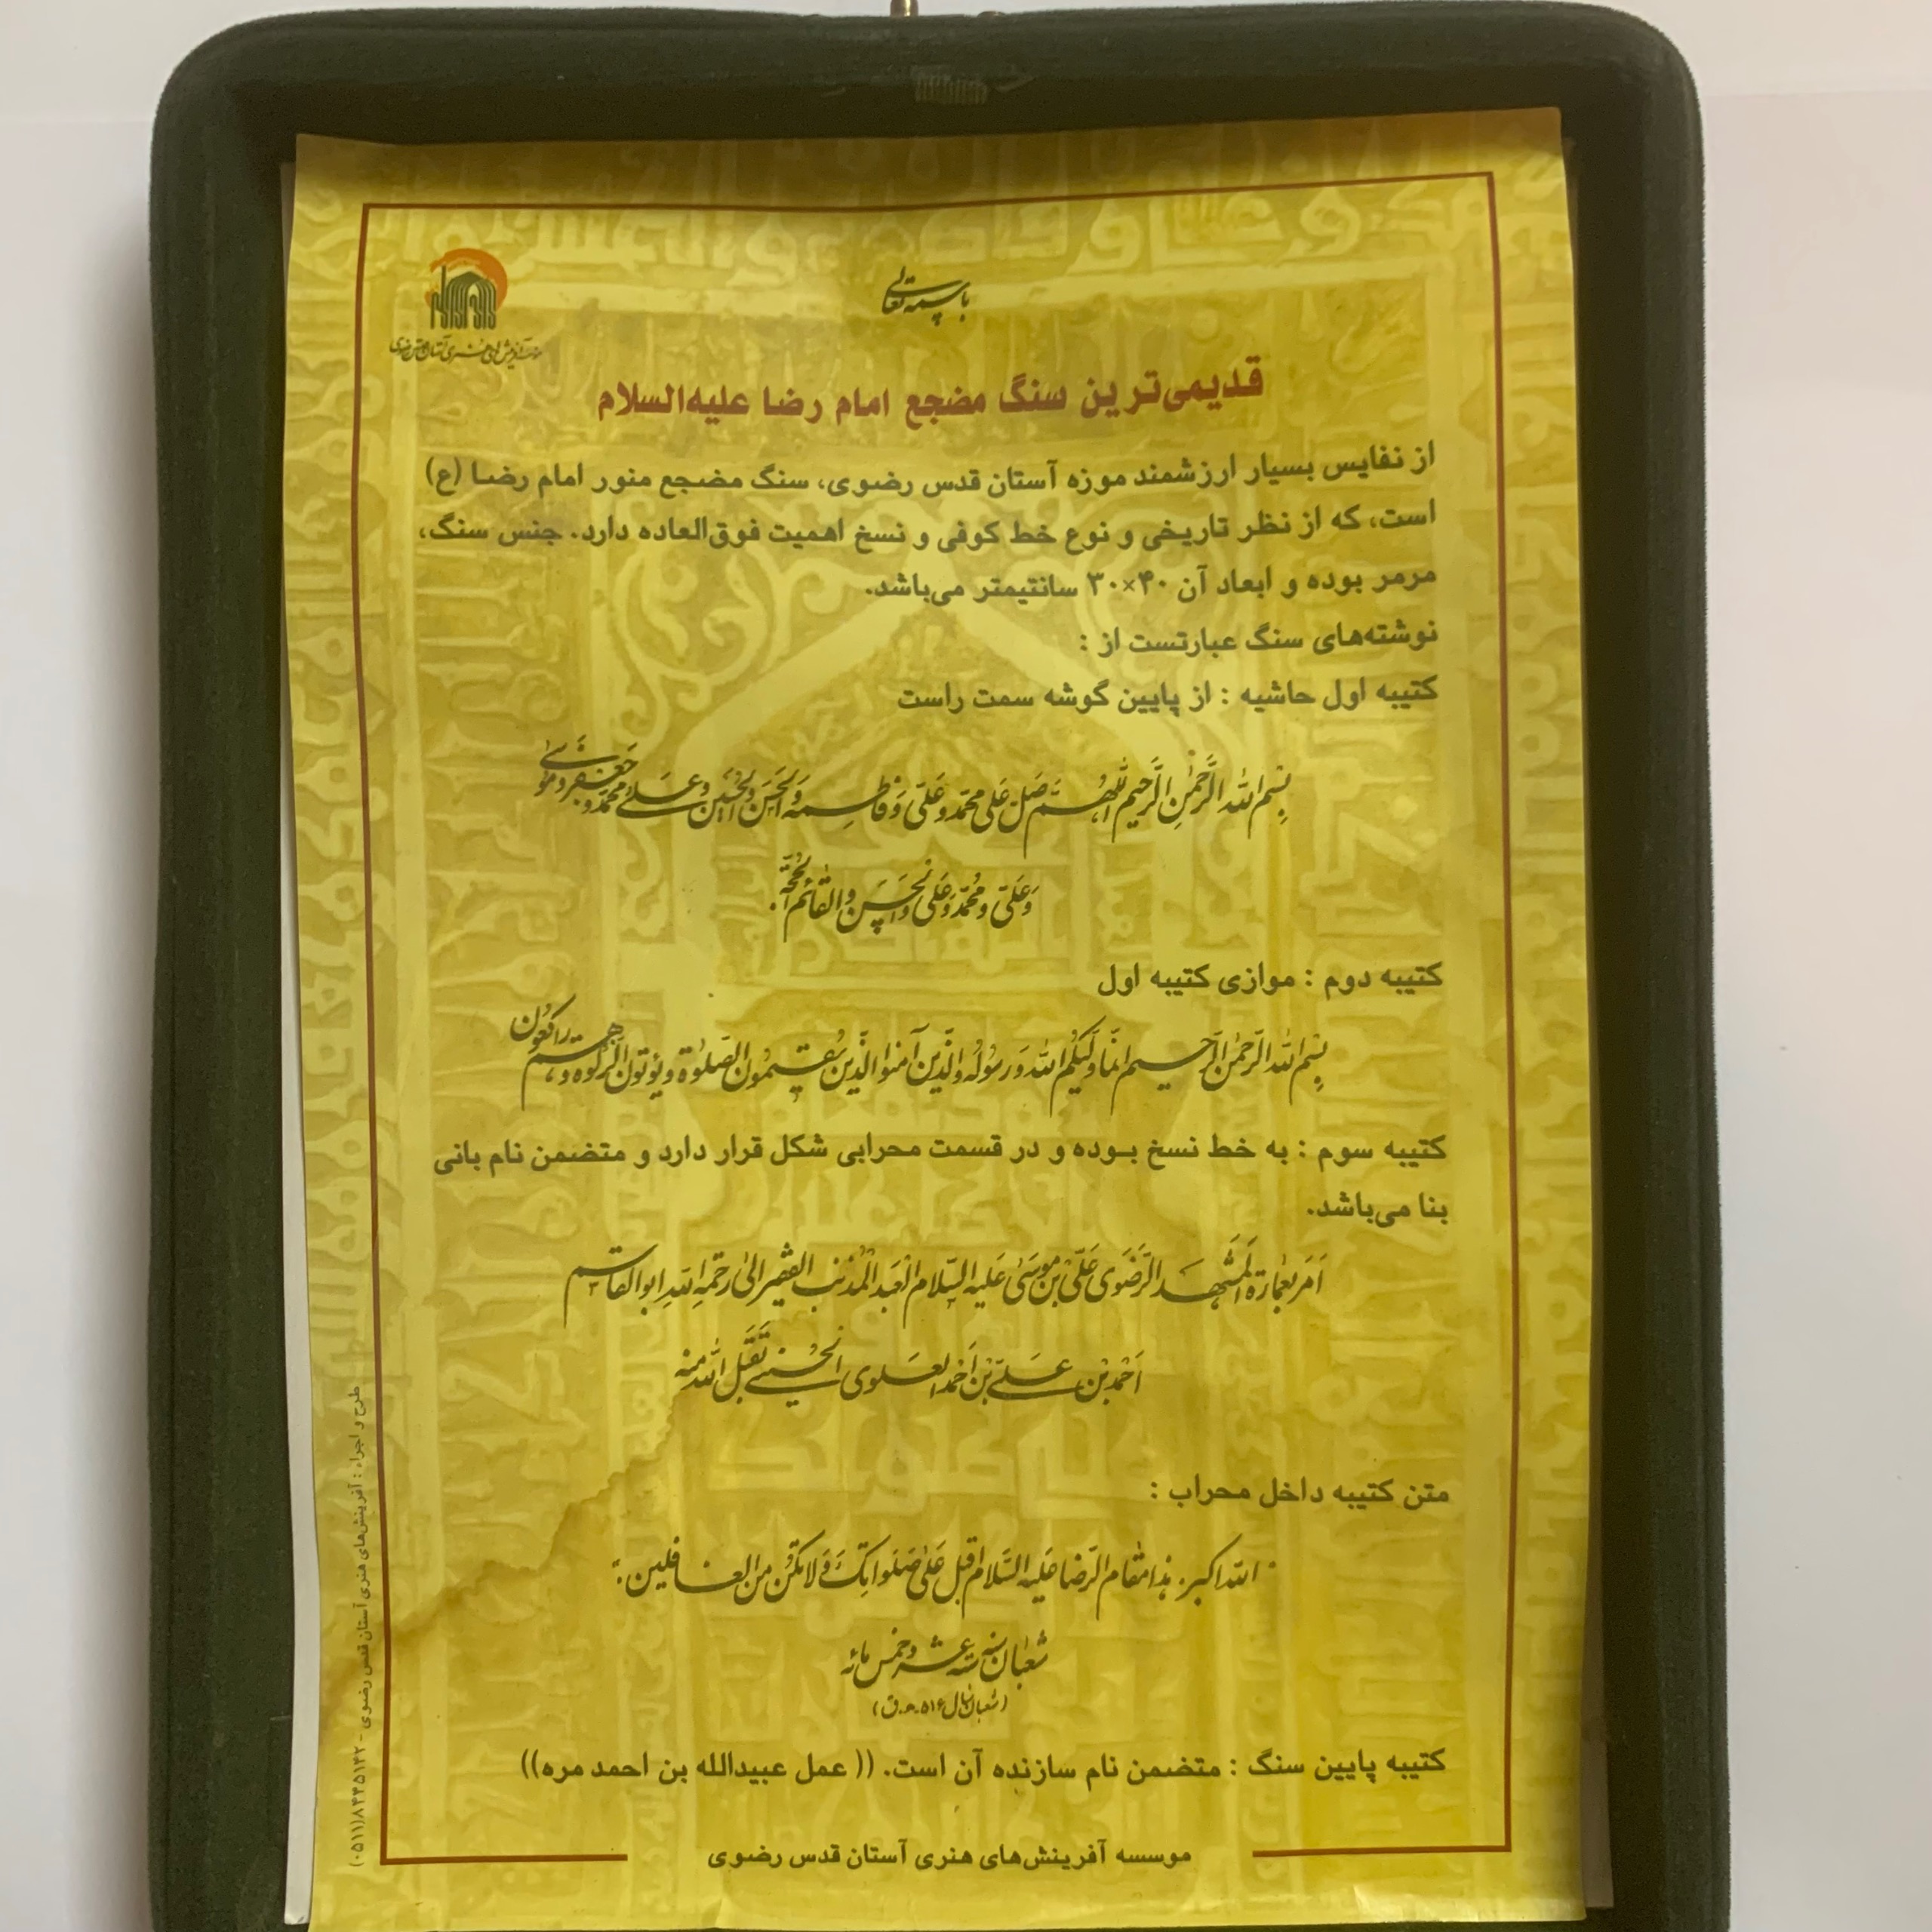 باسمه تعالی
موسسه آفرینش‌های هنری آستان قدس رضوی
قدیمی‌ترین سنگ مضجع امام رضا علیه‌السلام
از نفایس بسیار ارزشمند موزه آستان قدس رضوی، سنگ مضجع منور امام رضا (ع)
است، که از نظر تاریخی و نوع خط کوفی و نسخ اهمیت فوق‌العاده دارد. جنس سنگ،
مرمر بوده و ابعاد آن ۴۰×۳۰ سانتیمتر می‌باشد.
نوشته‌های سنگ عبارتست از :
کتیبه اول حاشیه : از پایین گوشه سمت راست
بِسْمِ اللهِ الرَّحْمٰنِ الرَّحیمِ اللّٰهُمَّ صَلِّ عَلی مُحَمَّد وَ عَلیّ وَ فاطِمه وَ الحَسَن وَ الحُسَین وَ عَلی وَ مُحَمَّد وَ جَعفَر وَ موُسیٰ
وَ عَلیّ وَ مُحَمَّد وَ عَلی وَ الحَسَن وَ القائم الحُجَّة.
کتیبه دوم : موازی کتیبه اول
بِسْمِ اللهِ الرَّحمٰنِ الرَّحیمِ اِنَّما وَلیُّکُمُ اللهُ وَ رَسُولُهُ وَ الَّذینَ آمَنوا الَّذینَ یُقیمُونَ الصَّلوٰةَ وَ یُؤتوُنَ الزَّکوٰةَ وَ هُم راکِعُون
کتیبه سوم : به خط نسخ بوده و در قسمت محرابی شکل قرار دارد و متضمن نام بانی
بنا می‌باشد.
اَمَرَ بِعِمارَةِ المَشْهَدِ الرَّضَوی عَلیِّ بْنِ موُسیٰ عَلَیهِ السَّلام اَلْعَبدُ المُذْنِبُ الفَقیرُ اِلیٰ رَحْمَةِ اللهِ ابوالقاسم
اَحْمَد بْن عَلیّ بْن اَحْمَد العَلَوی الحُسَینی تَقَبَّلَ اللهُ مِنه
متن کتیبه داخل محراب :
"الله اکبر. هٰذا مَقامُ الرِّضا عَلَیهِ السَّلام اَقبِل عَلیٰ صَلَواتِکَ وَ لا تَکُن مِنَ الغافِلین."
شَعْبان سَنَه سِتَّه عَشَر وَ خَمس مائه
(شعبان سال ۵۱۶ ه‍.ق)
کتیبه پایین سنگ : متضمن نام سازنده آن است. (( عمل عبیدالله بن احمد مره))
موسسه آفرینش‌های هنری آستان قدس رضوی
طرح و اجراء : آفرینش‌های هنری آستان قدس رضوی - ۸۴۴۵۱۴۲(۰۵۱۱)